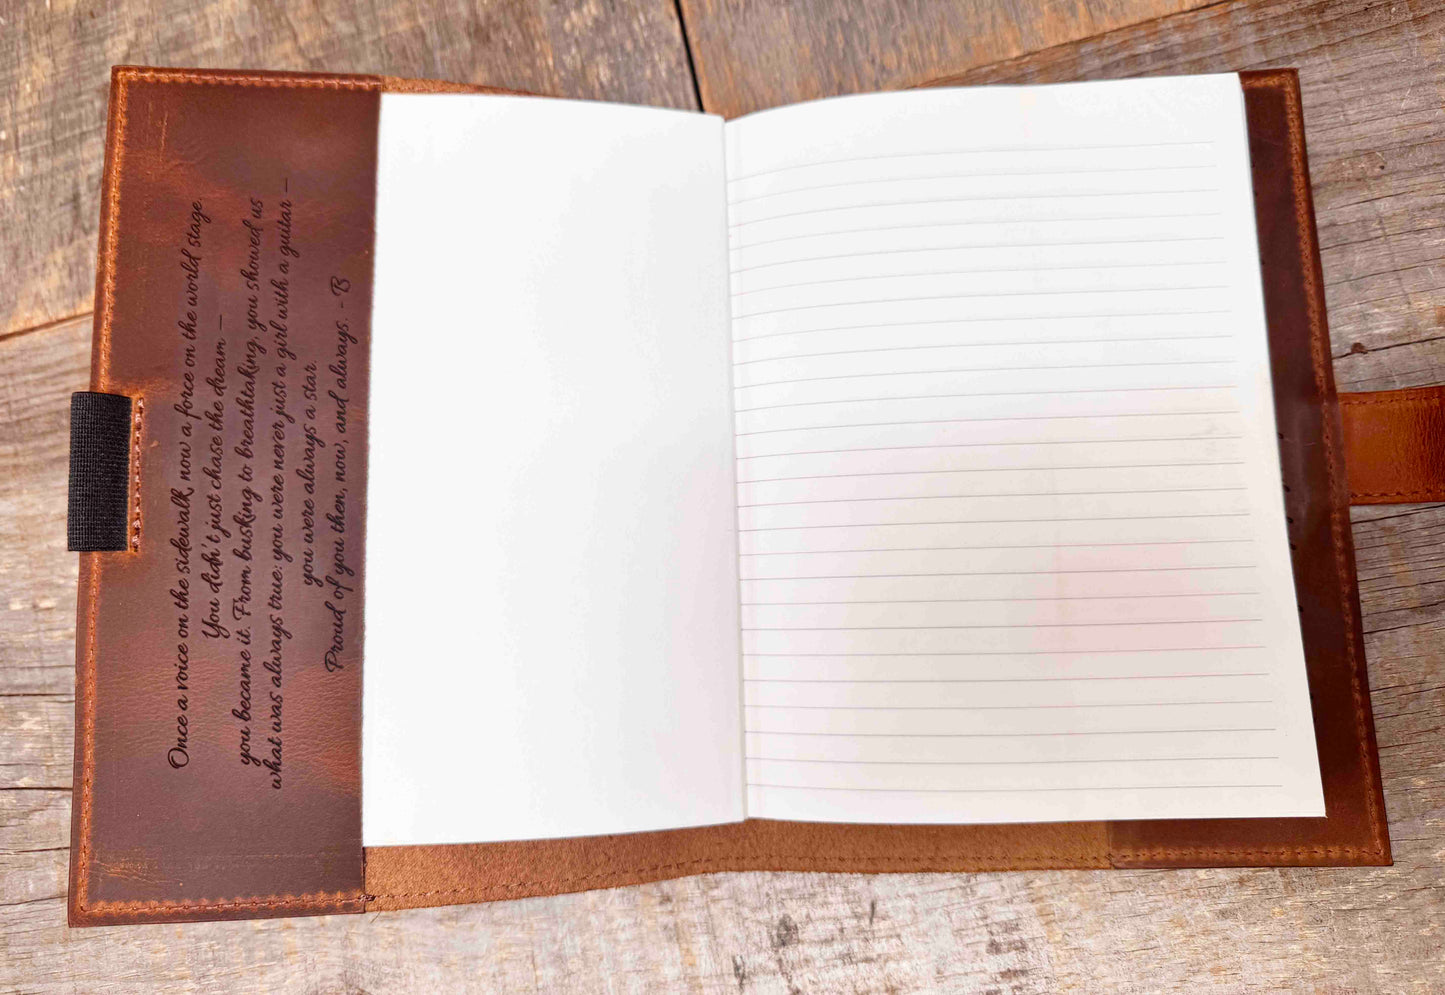 Once a voice on the sidewalk, now a force on the world stage.
You didn't just chase the dream —
you became it. From busking to breathtaking, you showed us
what was always true: you were never just a girl with a guitar —
you were always a star.
Proud of you then, now, and always. - B